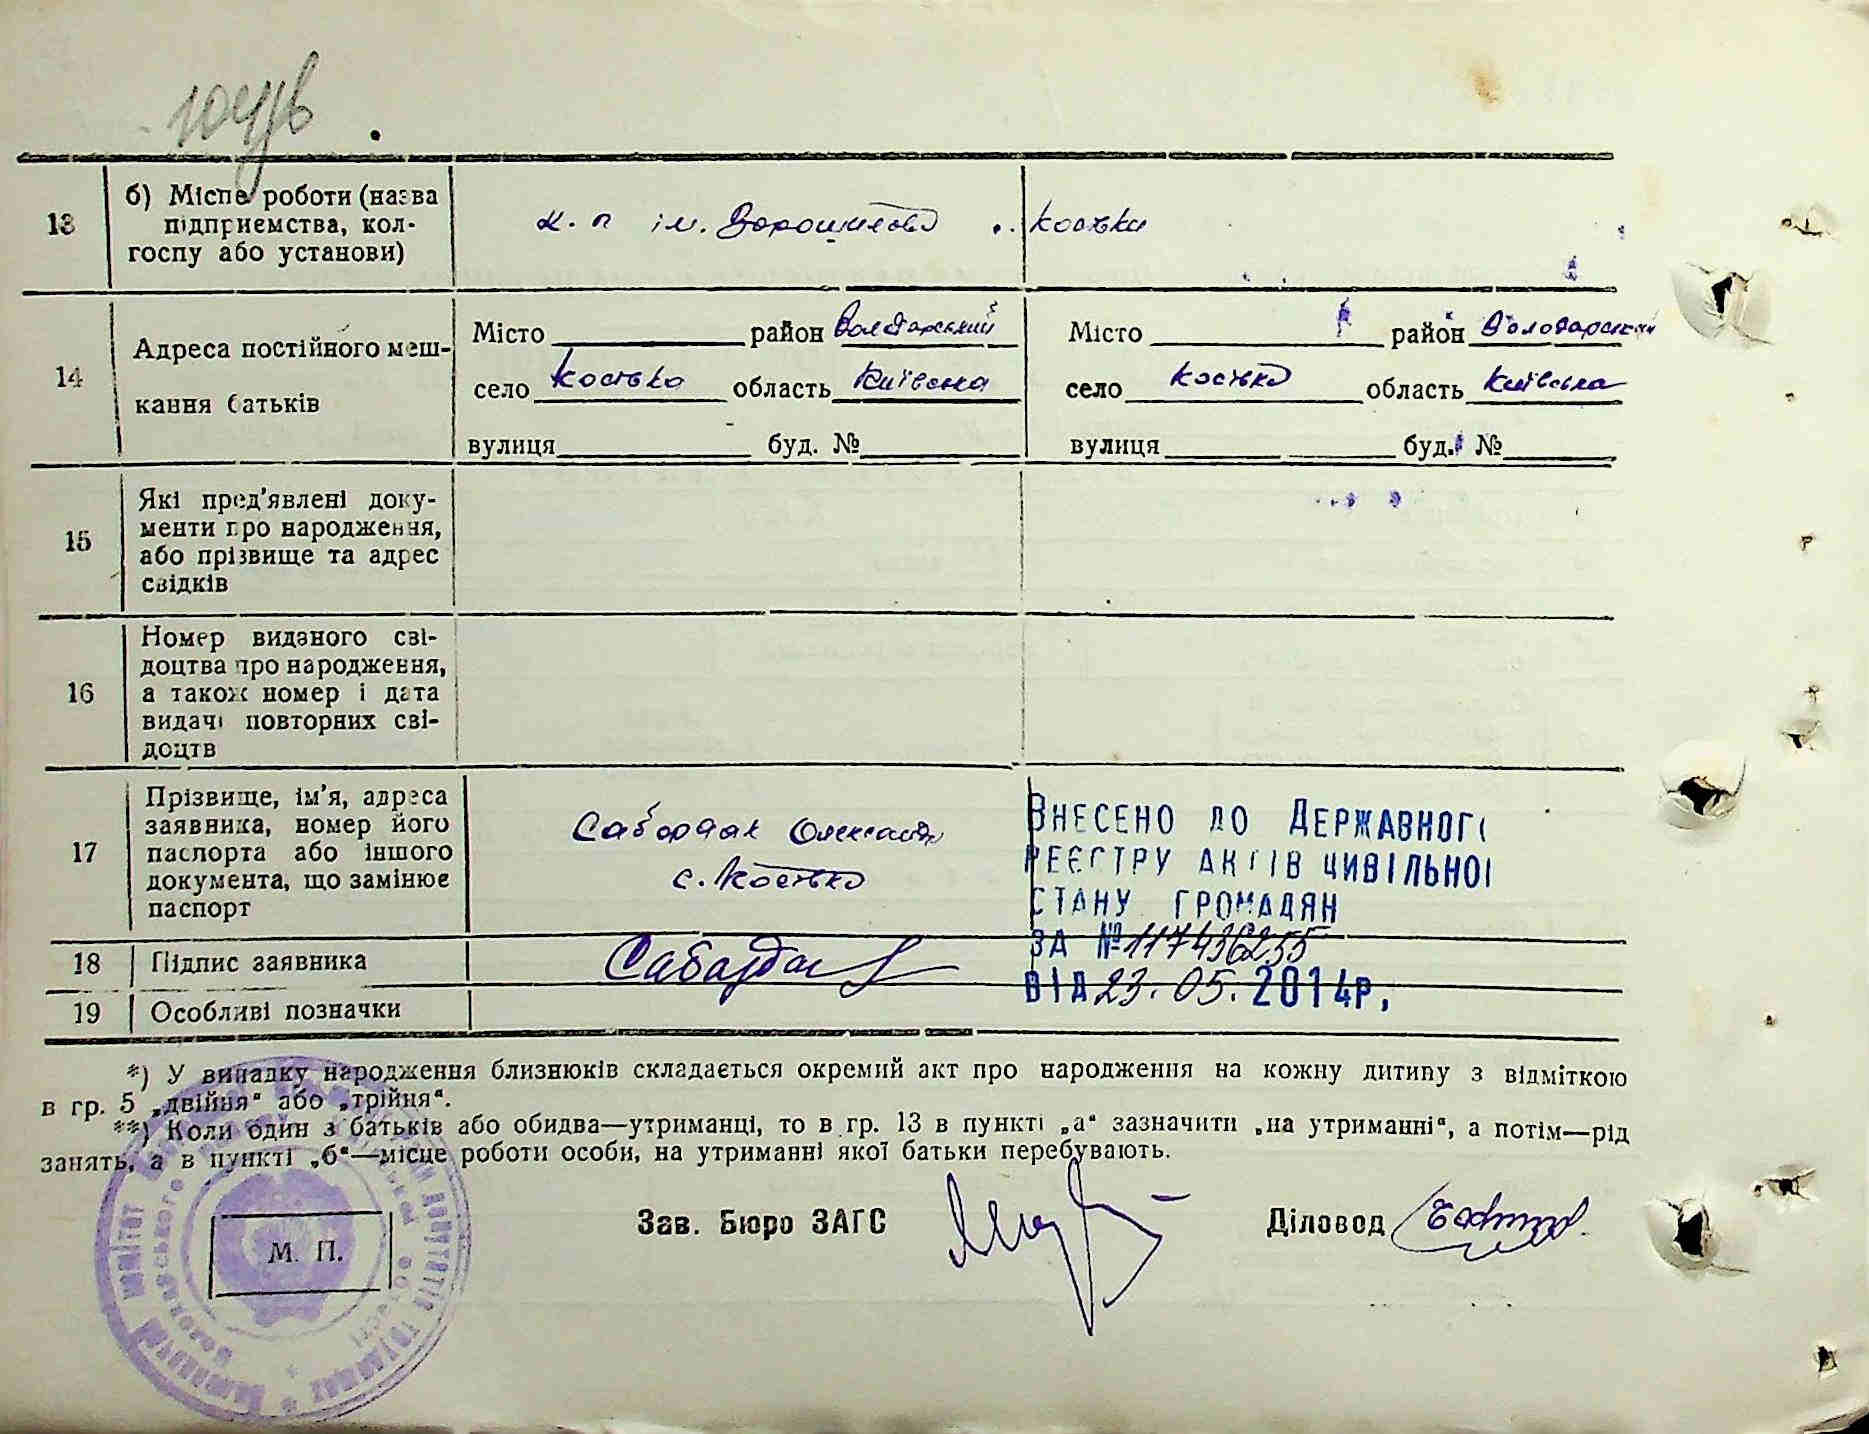 13 б) Місце роботи (назва підприємства, колгоспу або установи)
к. п ім. Ворошилова с. Косівки
14 Адреса постійного мешкання батьків
Місто район Володарський
село Косівка область Київська
вулиця буд. №
Місто район Володарський
село Косівка область Київська
вулиця буд. №
15 Які пред'явлені документи про народження, або прізвище та адрес свідків
16 Номер виданого свідоцтва про народження, а також номер і дата видачі повторних свідоцтв
17 Прізвище, ім'я, адреса заявника, номер його паспорта або іншого документа, що замінює паспорт
Сабардак
с. Косівка
ВНЕСЕНО ДО ДЕРЖАВНОГО
РЕЄСТРУ АКТІВ ЦИВІЛЬНОГО
СТАНУ ГРОМАДЯН
ЗА № 117436255
ВІД 23.05.2014р.
18 Підпис заявника
Сабардак
19 Особливі позначки
*) У випадку народження близнюків складається окремий акт про народження на кожну дитину з відміткою
в гр. 5 „двійня“ або „трійня“.
**) Коли один з батьків або обидва—утриманці, то в гр. 13 в пункті „а“ зазначити „на утриманні“, а потім—рід
занять, а в пункті „б“—місце роботи особи, на утриманні якої батьки перебувають.
М. П.
Зав. Бюро ЗАГС
Діловод